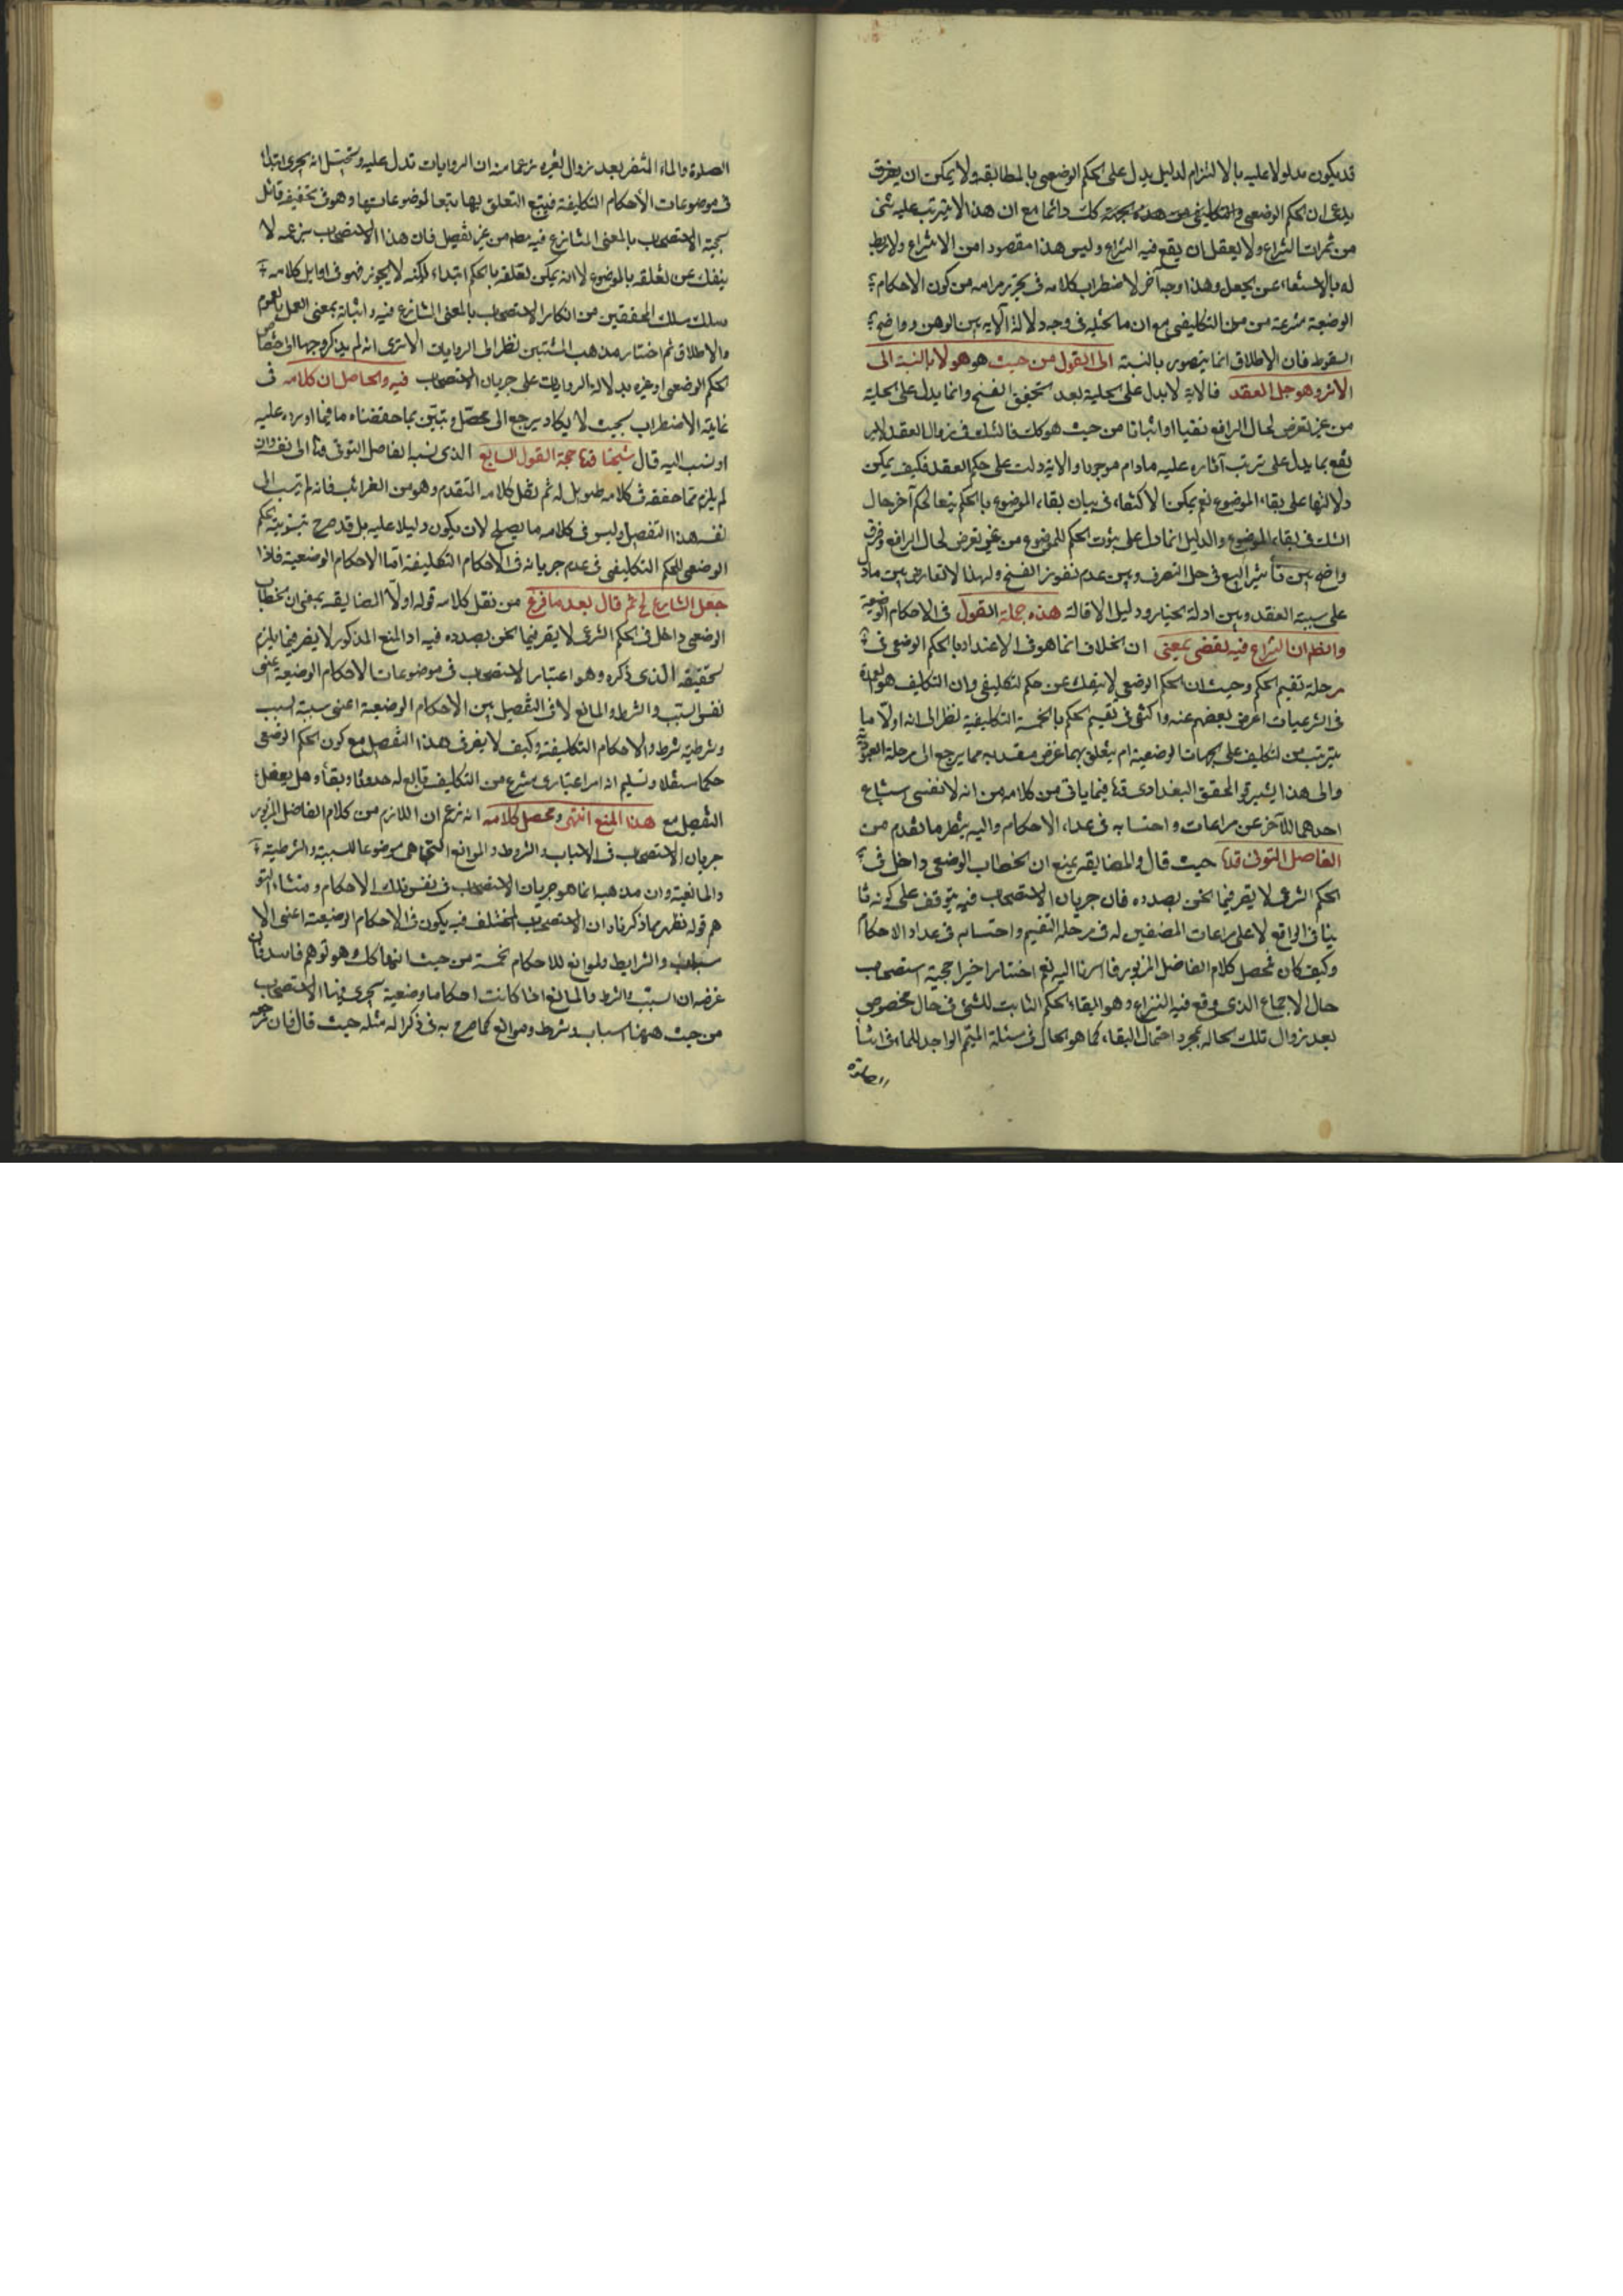 قد يكون مدلولا عليه بالالتزام لدليل يدل على الحكم الوضعى بالمطابقه ولا يمكن ان يفرق
يدعى ان الحكم الوضعى والتكليفى من هذه الجهة كك دائما مع ان هذا لا يترتب عليه شئ
من ثمرات النزاع ولا يعقل ان يقع فيه النزاع وليس هذا مقصودا من الانتزاع ولا ربط
له بالاستغناء عن الجعل وهذا وجه آخر لاضطراب كلامه فى تحرير مرامه من كون الاحكام
الوضعية منتزعة من التكليفى مع ان ما تخيله فى وجه دلالة الآية بين الوهن وواضح
السقوط فان الاطلاق انما يتصور بالنسبة الى القول من حيث هو هو لا بالنسبة الى
الاثر وهو حل العقد فالاية لا يدل على الحلية بعد تحقيق الفسخ وانما يدل على الحلية
من غير تعرض لحال الرافع نفيا او اثباتا من حيث هو كك فالشك فى زوال العقد لا ير
تفع بما يدل على ترتب آثاره عليه مادام موجودا والاية دلت على حكم العقد فكيف يمكن
دلالتها على بقاء الموضوع نعم يمكن الاكتفاء فى بيان بقاء الموضوع بالحكم تبعا لحكم آخر حال
الشك فى بقاء الموضوع والدليل انما دل على ثبوت الحكم للموضوع من غير تعرض لحال الرافع وفرق
واضح بين تأثير البيع فى حل التصرف وبين عدم نفوذ الفسخ ولهذا لا تعارض بين ما دل
على سببية العقد وبين ادلة الخيار ودليل الاقالة هذه جملة القول فى الاحكام الوضعية
والظ ان النزاع فيه لفظى بمعنى ان الخلاف انما هو فى الاعتداد بالحكم الوضعى فى
مرحلة تقسيم الحكم وحيث ان الحكم الوضعى لا ينفك عن حكم تكليفى وان التكليف هو العمدة
فى الشرعيات اعرض بعضهم عنه واكتفى فى تقسيم الحكم بالخمسة التكليفية نظرا الى انه اولا ما
يترتب من التكليف على الجهات الوضعية ام يتعلق بهما غرض معتد به مما يرجع الى مرحلة العبودية
والى هذا يشير المحقق البغدادى قده فيما ياتى من كلامه من انه لا نفسى استتباع
احدهما للآخر عن مراعات واحتسابه فى عداد الاحكام واليه ينظر ما تقدم من
الفاضل التونى قده حيث قال والمضايقة بمنع ان الخطاب الوضعى داخل فى
الحكم الشرعى لا يضر فيما نحن بصدده فان جريان الاستصحاب فيه يتوقف على كونه ثا
بتا فى الواقع لا على مراعات المصنفين له فى مرحلة التقسيم واحتسابه فى عداد الاحكام
وكيف كان فمحصل كلام الفاضل المزبور ما اشرنا اليه نعم اختار اخيرا حجية استصحاب
حال الاجماع الذى وقع فيه النزاع وهو ابقاء الحكم الثابت للشئ فى حال مخصوص
بعد زوال تلك الحاله بمجرد احتمال البقاء كما هو الحال فى مسئلة المتيمم الواجد للماء فى اثنا
الصلوة
الصلوة والماء المتغير بعد زوال تغيره زعما منه ان الروايات تدل عليه ويحتمل انه يجرى ابتداء
فى موضوعات الأحكام التكليفية فيتبع التعلق بها تبعا لموضوعاتها وهو فى تحقيقه قائل
بحجية الاستصحاب بالمعنى المتنازع فيه مط من غير تفصيل فان هذا الاستصحاب بزعمه لا
ينفك عن تعلقه بالموضوع لا انه يمكن تعلقه بالحكم ابتداء لكنه لا يجوز فهو فى اوايل كلامه
سلك مسلك المحققين من انكار الاستصحاب بالمعنى المتنازع فيه واثباته بمعنى العمل بالعموم
والاطلاق ثم اختار مذهب المثبتين نظرا الى الروايات الا ترى انه لم يذكر وجها الى اختصاص
الحكم الوضعى او غيره بدلالة الروايات على جريان الاستصحاب فيه والحاصل ان كلامه فى
غاية الاضطراب بحيث لا يكاد يرجع الى محصل وتبين بما حققناه ما فيما اورده عليه
او نسب اليه قال شيخنا قده حجة القول السابع الذى نسبه الفاضل التونى قده الى نفسه وان
لم يلزم مما حققه فى كلامه طويل له ثم نقل كلامه المتقدم وهو من الغرائب فانه لم ينسب الى
نفسه هذا التفصيل وليس فى كلامه ما يصلح لان يكون دليلا عليه بل قد صرح بتسوية الحكم
الوضعى للحكم التكليفى فى عدم جريانه فى الاحكام التكليفية اما الاحكام الوضعية فاذا
جعل الشارع لخ ثم قال بعد ما فرغ من نقل كلامه قوله اولا المضايقه بمعنى ان الخطاب
الوضعى داخل فى الحكم الشرعى لا يضر فيما نحن بصدده فيه اد المنع المذكور لا يضر فيما يلزم
تحقيقه الذى ذكره وهو اعتبار الاستصحاب فى موضوعات الاحكام الوضعية اعنى
نفس السبب والشرط والمانع لا فى التفصيل بين الاحكام الوضعية اعنى سببية السبب
وشرطية الشرط والاحكام التكليفية وكيف لا يضر فى هذا التفصيل منع كون الحكم الوضعى
حكما مستقلا وتسليم انه امر اعتبارى منتزع من التكليف تابع له حدوثا وبقاء وهل يعقل
التفصيل مع هذا المنع انتهى ومحصل كلامه انه زعم ان اللازم من كلام الفاضل المزبور
جريان الاستصحاب فى الاسباب والشروط والموانع التى هى موضوعا للسببية والشرطية
والمانعية وان مذهبه انما هو جريان الاستصحاب فى نفس تلك الاحكام ومنشاء التو
هم قوله فظهر بما ذكرناه ان الاستصحاب المختلف فيه يكون فى الاحكام الوضعية اعنى الا
سباب والشرايط والموانع للاحكام الخمسة من حيث انها كك وهو توهم فاسد فان
غرضه ان السبب والشرط والمانع اذا كانت احكاما وضعية يجرى فيها الاستصحاب
من حيث هيهنا اسباب وشرط وموانع كما صرح به فى ذكر امثله حيث قال فان مرجعه